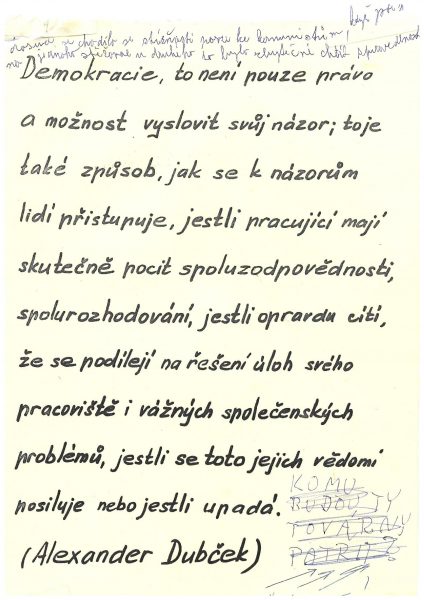 když jste si
dosud chodilo se stížností porad ke komunistům,
jednoho stěžovat u druhého to bylo zbytečné chtít spravedlnost
Demokracie, to není pouze právo
a možnost vyslovit svůj názor; toje
také způsob, jak se k názorům
lidí přistupuje, jestli pracující mají
skutečně pocit spoluzodpovědnosti,
spolurozhodování, jestli opravdu cítí,
že se podílejí na řešení úloh svého
pracoviště i vážných společenských
problémů, jestli se toto jejich vědomí
posiluje nebo jestli upadá.
(Alexander Dubček)
KOMU
BUDOU TY
TOVÁRNY
PATŘIT?